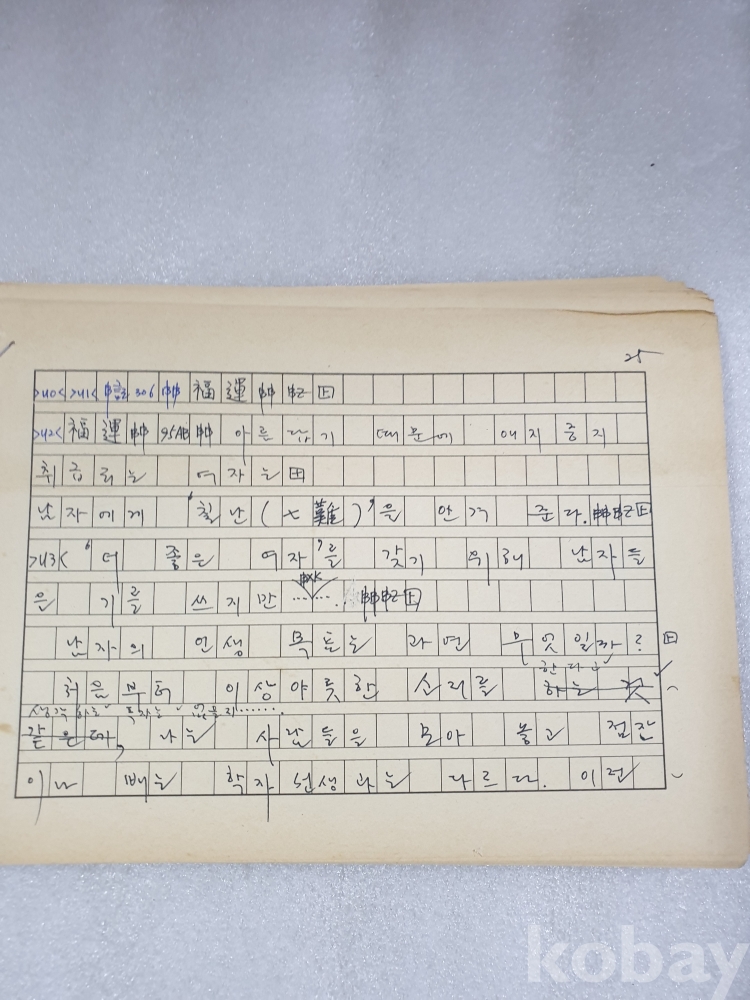 25
福運
福運 아름답기 때문에 애지중지
취급되는 여자는
남자에게 '칠난(七難)'을 안겨 준다.
>U3< '더 좋은 여자'를 갖기 위해 남자들
은 기를 쓰지만……
남자의 인생 목표는 과연 무엇일까?
처음부터 이상야릇한 소리를 하는 것
한다고
생각하는 독자는 없을지……
같은데, 나는 사람들을 모아 놓고 점잔
이나 빼는 학자 선생과는 다르다. 이런
kobay